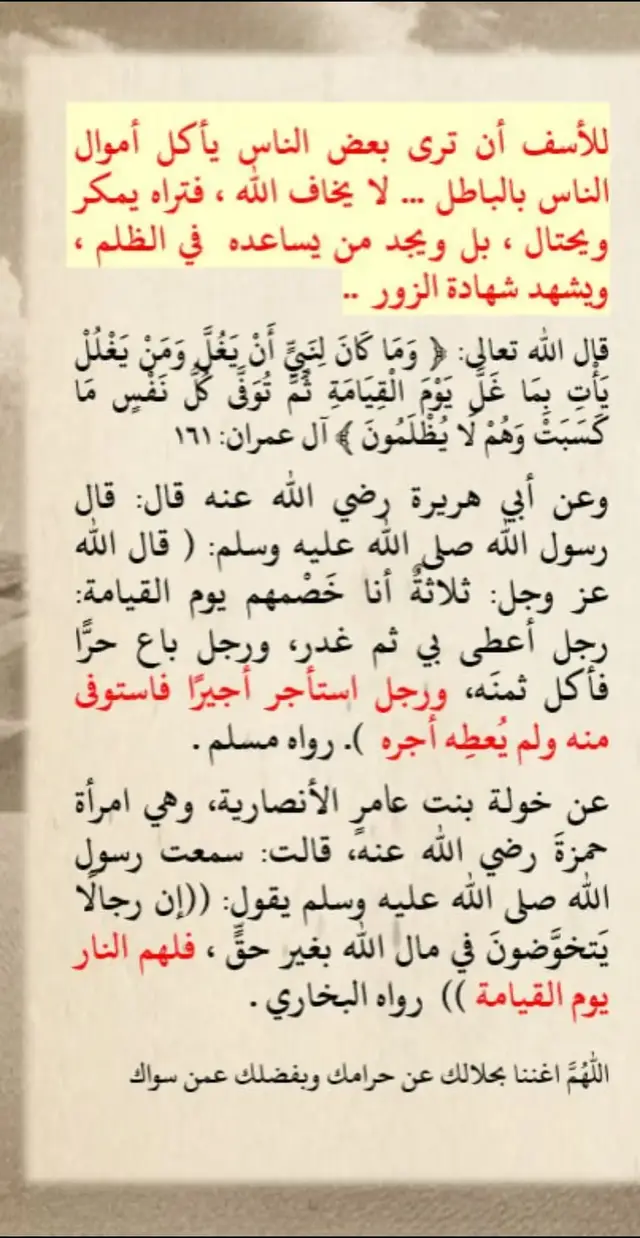 للأسف أن ترى بعض الناس يأكل أموال
الناس بالباطل ... لا يخاف الله ، فتراه يمكر
ويحتال ، بل ويجد من يساعده في الظلم ،
ويشهد شهادة الزور ..
قال الله تعالى: ﴿ وَمَا كَانَ لِنَبِيٍّ أَنْ يَغُلَّ وَمَنْ يَغْلُلْ
يَأْتِ بِمَا غَلَّ يَوْمَ الْقِيَامَةِ ثُمَّ تُوَفَّى كُلُّ نَفْسٍ مَا
كَسَبَتْ وَهُمْ لَا يُظْلَمُونَ ﴾ آل عمران: ١٦١
وعن أبي هريرة رضي الله عنه قال: قال
رسول الله صلى الله عليه وسلم: ( قال الله
عز وجل: ثلاثةٌ أنا خَصْمهم يوم القيامة:
رجل أعطى بي ثم غدر، ورجل باع حرًّا
فأكل ثمنَه، ورجل استأجر أجيرًا فاستوفى
منه ولم يُعطِه أجره ). رواه مسلم .
عن خولة بنت عامرٍ الأنصارية، وهي امرأة
حمزةَ رضي الله عنه، قالت: سمعت رسول
الله صلى الله عليه وسلم يقول: ((إن رجالًا
يَتخوَّضونَ في مال الله بغير حقٍّ ، فلهم النار
يوم القيامة )) رواه البخاري .
اللَّهُمَّ اغننا بحلالك عن حرامك وبفضلك عمن سواك